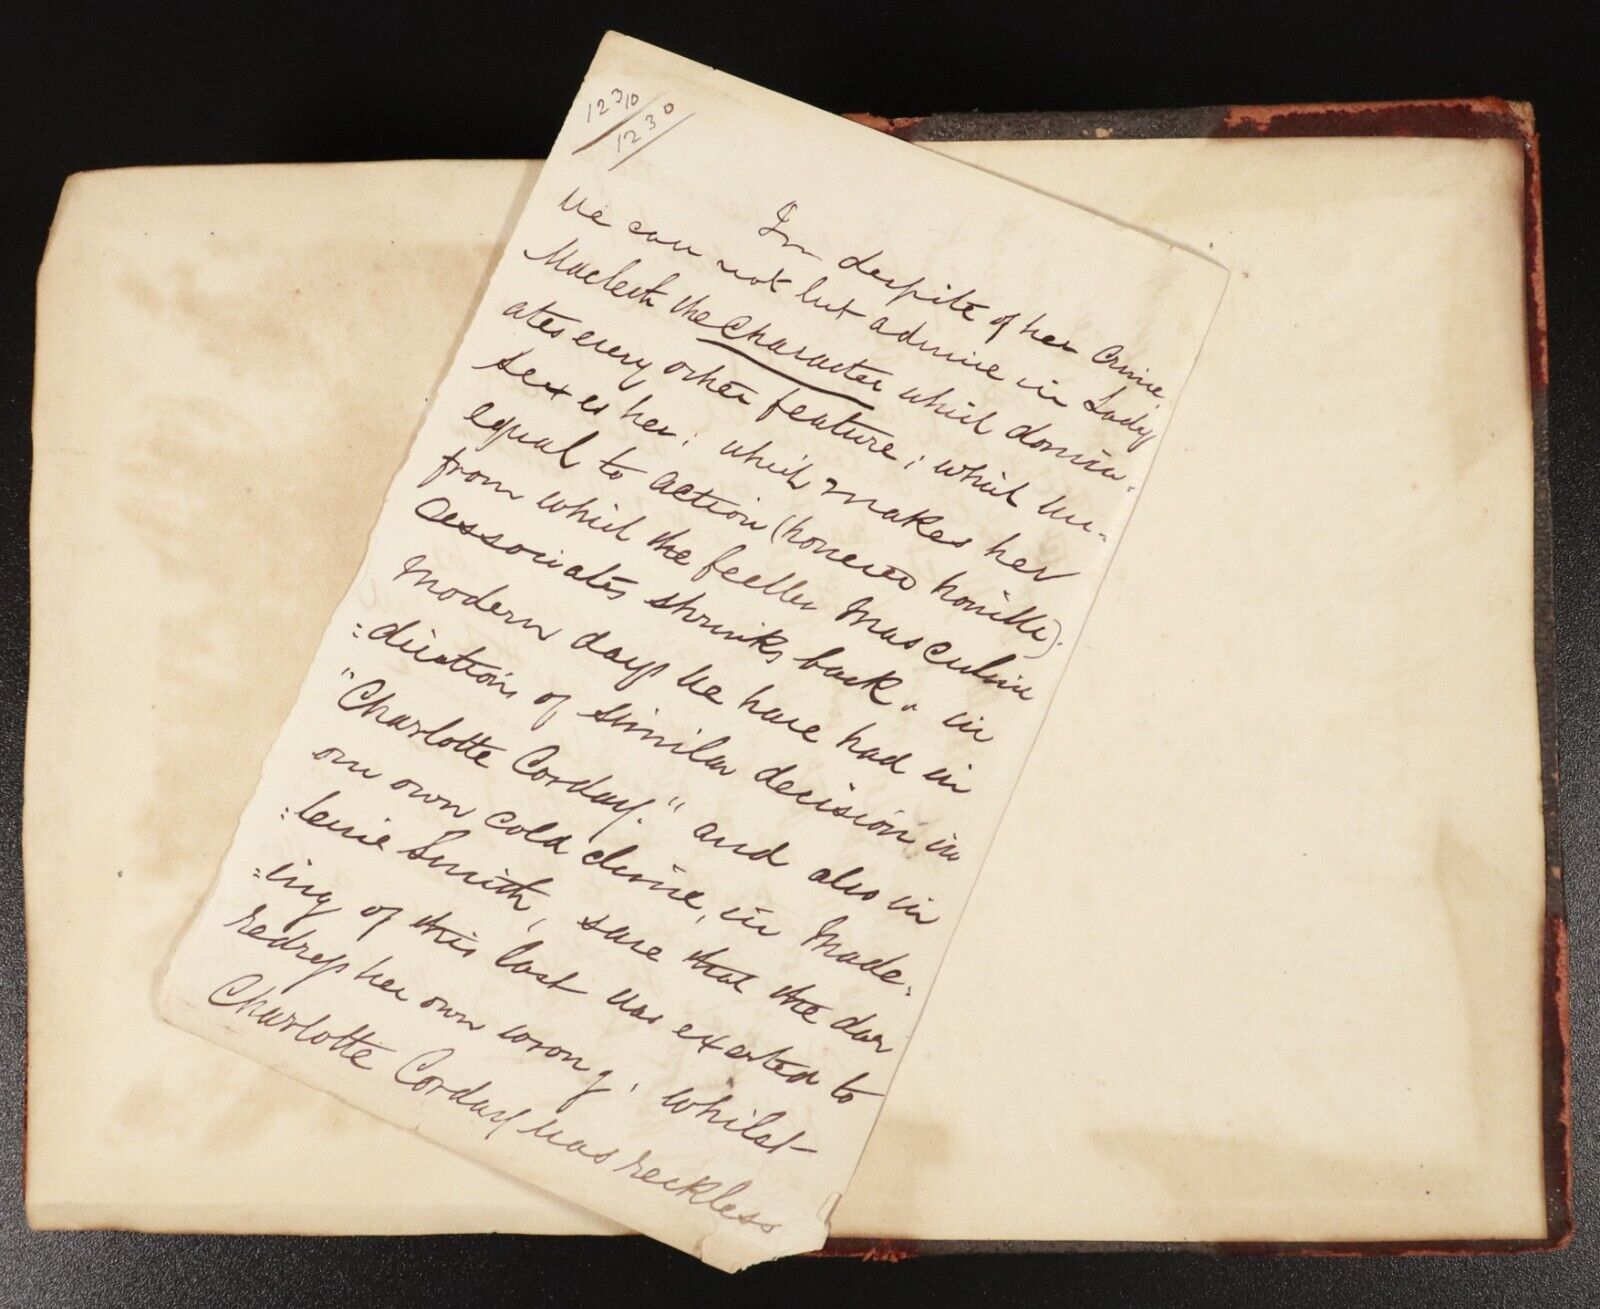 12 30/
12 30/
In despite of her Crime
We can not but admire in Lady
Macbeth the Character which domin-
ates every other feature; which un-
sexes her; which makes her
equal to action (however horrible)
from which the feebler Masculine
associates shrinks back. in
modern days We have had in
=dications of similar decision in
"Charlotte Corday." and also in
our own cold clime, in Made-
=leine Smith, save that the dar
=ing of this last was exerted to
redress her own wrong, whilst
Charlotte Corday was reckless